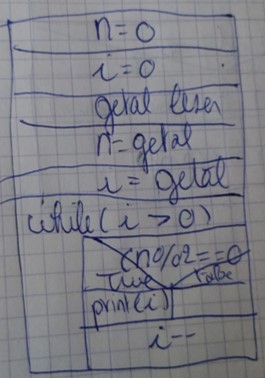 n = 0
i = 0
getal lezen
n = getal
i = getal
while (i > 0)
(n%2 == 0
True False
print(i)
i--